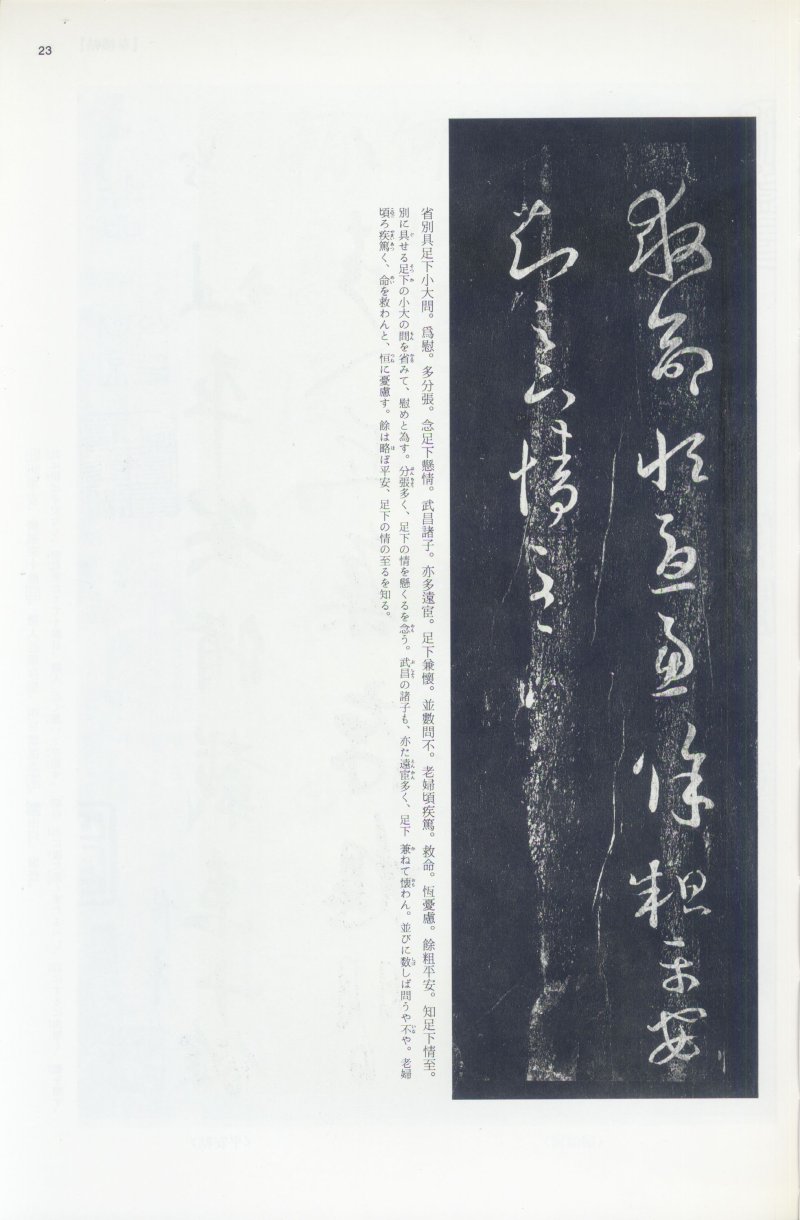 23
救命恒憂慮餘粗平安
知足下情至
省別具足下小大問。爲慰。多分張。念足下懸情。武昌諸子。亦多遠宦。足下兼懷。並數問不。老婦頃疾篤。救命。恆憂慮。餘粗平安。知足下情至。
別に具せる足下の小大の問を省みて、慰めと為す。分張多く、足下の情を懸くるを念う。武昌の諸子も、亦た遠宦多く、足下 兼ねて懐わん。並びに数しば問うや不や。老婦
頃ろ疾篤く、命を救わんと、恒に憂慮す。餘は略ぼ平安、足下の情の至るを知る。